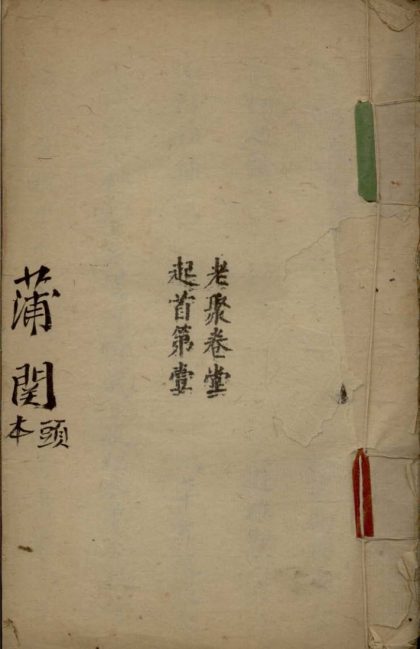 老聚卷堂
起首第壹
蒲関
頭本